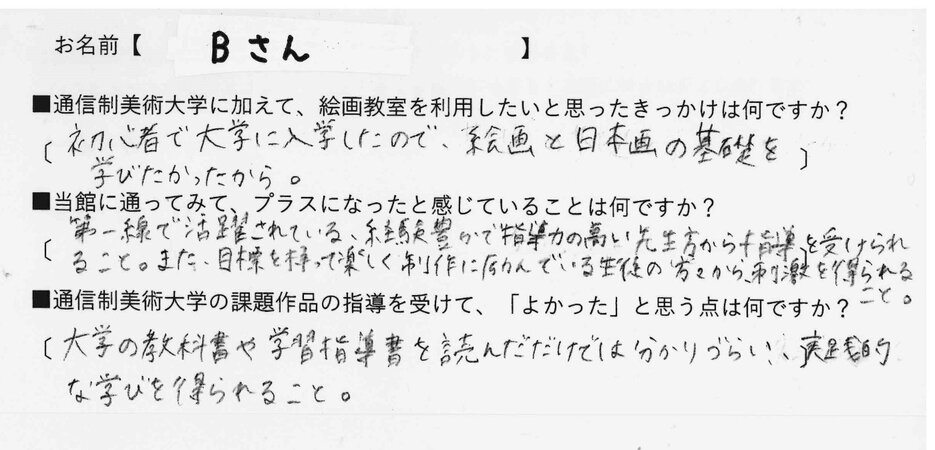 お名前【 Bさん 】
■通信制美術大学に加えて、絵画教室を利用したいと思ったきっかけは何ですか？
( 初心者で大学に入学したので、絵画と日本画の基礎を )
学びたかったから。
■当館に通ってみて、プラスになったと感じていることは何ですか？
( 第一線で活躍されている、経験豊かで指導力の高い先生方から指導を受けられ
ること。また、目標を持って楽しく制作に励んでいる生徒の方々から刺激を得られる
こと。
■通信制美術大学の課題作品の指導を受けて、「よかった」と思う点は何ですか？
( 大学の教科書や学習指導書を読んだだけでは分かりづらい、実践的
な学びを得られること。